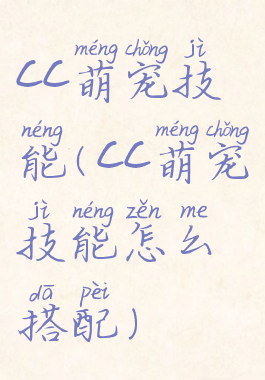 méng chǒng jì
CC萌宠技
néng méng chǒng
能(CC萌宠
jì néng zěn me
技能怎么
dā pèi
搭配)